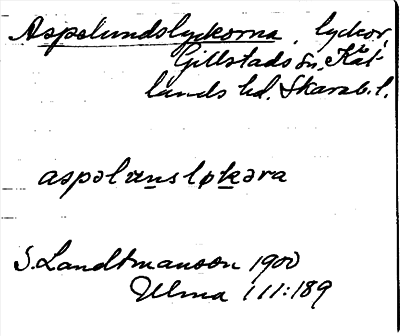 Aspelundslyckorna, lyckor,
Gillstads sn, Kål-
lands hd. Skarab. l.
aspəlɯnsløkəra
S. Landtmanson 1900
Ulma 111:189